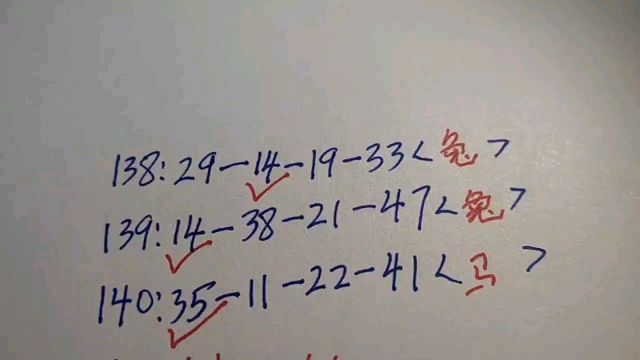 138:29-14-19-33<兔>
139:14-38-21-47<兔>
140:35-11-22-41<马>